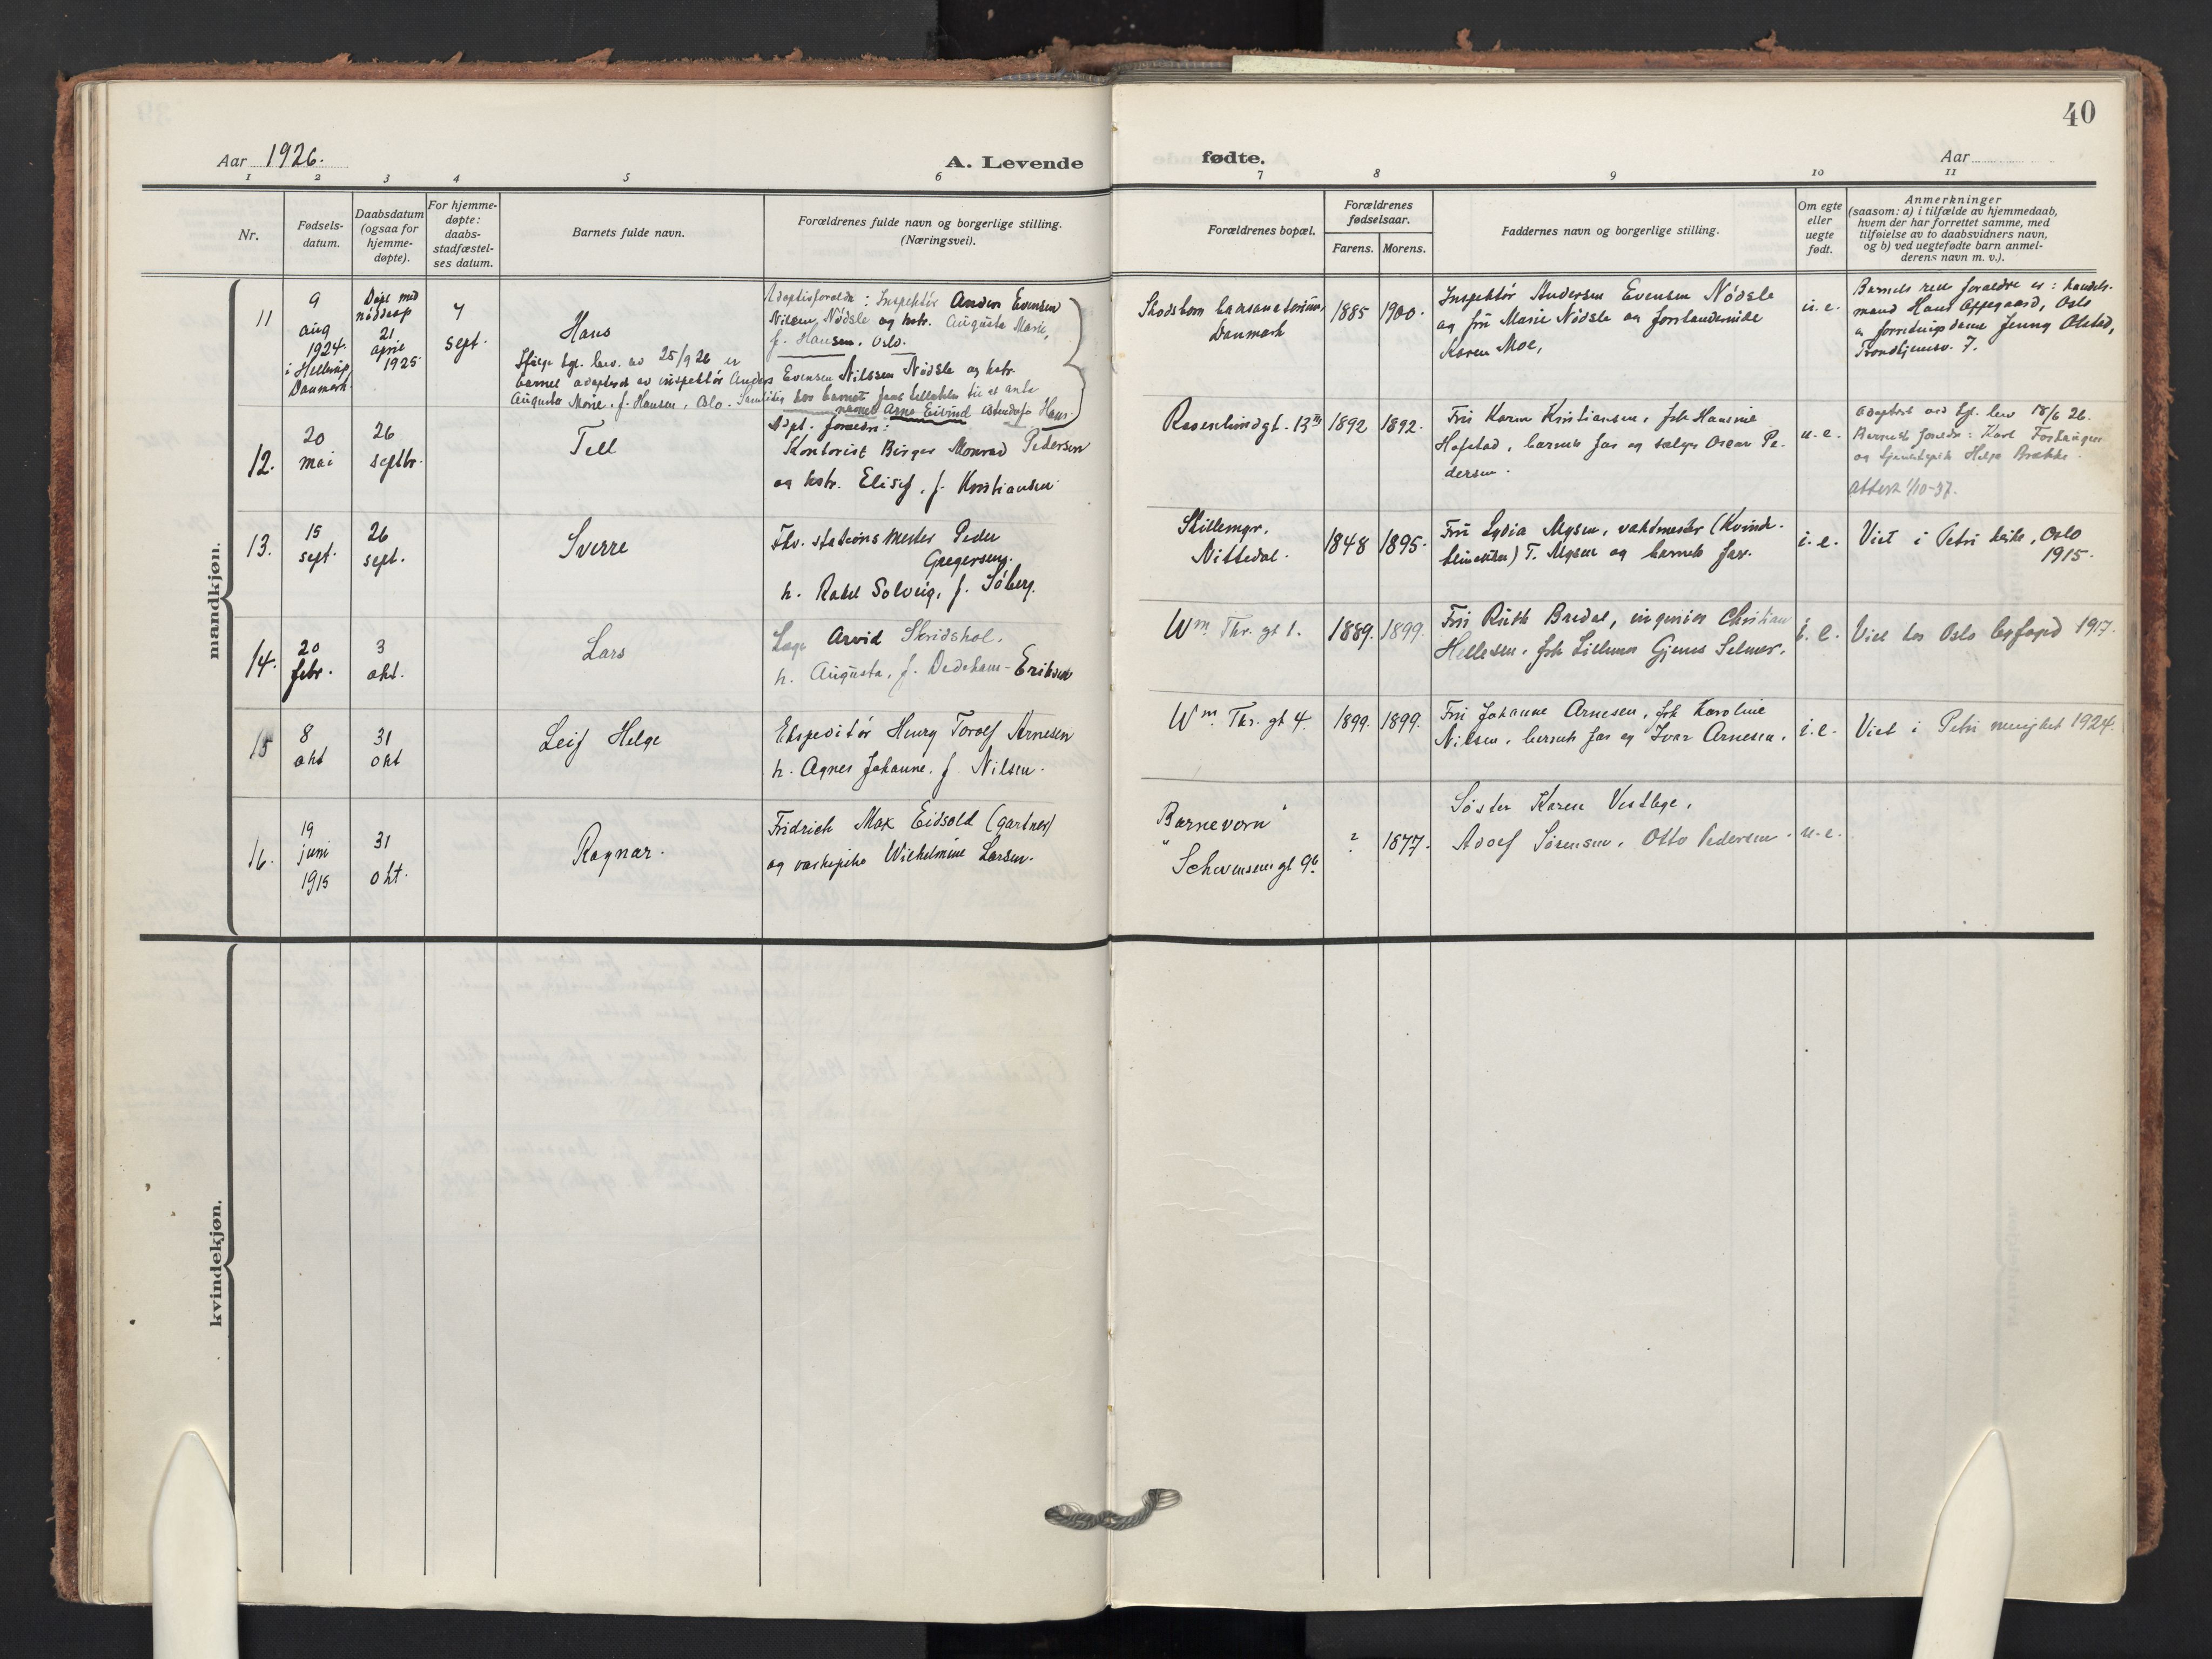 40
Aar 1926.
A. Levende
fødte.
Aar
1
2
3
4
5
6
7
8
9
10
11
Nr.
Fødsels-
datum.
Daabsdatum
(ogsaa for
hjemme-
døpte).
For hjemme-
døpte:
daabs-
stadfæstel-
ses datum.
Barnets fulde navn.
Forældrenes fulde navn og borgerlige stilling.
(Næringsvei).
Forældrenes bopæl.
Forældrenes
fødselsaar.
Farens.
Morens.
Faddernes navn og borgerlige stilling.
Om egte
eller
uegte
født.
Anmerkninger
(saasom: a) i tilfælde av hjemmedaab,
hvem der har forrettet samme, med
tilføielse av to daabsvidners navn,
og b) ved uegtefødte barn anmel-
derens navn m. v.).
mandkjøn.
11
9
aug
1924.
i Hellerup
Danmark.
Døpt med
nøddaap
21
april
1925
7
sept.
Hans
Ifølge kgl. bev. av 25/9 26 er
barnet adopteret av inspektör Anders Evensen Nilssen Nödsle og hstr.
Augusta Marie, f. Hansen, Oslo. Samtidig har barnet faat tillatelse til at anta
navnet Arne Eivind istedetfor Hans.
Adoptivforældre: Inspektör Anders Evensen
Nilsen Nödsle og hstr. Augusta Marie,
f. Hansen, Oslo.
Skodsborg barsanatorium,
Danmark
1885
1900.
Inspektör Andersen Evensen Nödsle
og fru Marie Nödsle og forstanderinde
Karen Moe,
u. e.
Barnets rette forældre er: handels-
mand Hans Oppegaard, Oslo
og forretningsdame Jenny Olstad,
Trondhjemsv. 7.
12.
20
mai
26
septbr.
Tell
Adpt. forældre:
Kontorist Birger Monrad Pedersen
og hstr. Elisef, f. Kristiansen
Rosenlundgt. 13
1892
1892.
Fru Karen Kristiansen, frk Hansine
Hofstad, barnets far og sælger Oscar Pe-
dersen.
u. e.
Adoptert ved kgl. bev 18/6 26.
Barnets forældre: Karl
og tjenestepike Helga Brække.
Attest 1/10-37.
13.
15
sept.
26
sept.
Sverre
Fhv. stationsmester Peder
Gregersen,
h. Rakel Solveig, f. Söberg.
Skillemyr,
Nittedal.
1848
1895.
Fru Lydia Mysen, vaktmester (Kvinde-
klinikken) T. Mysen og barnets far.
i. e.
Viet i Petri kirke, Oslo
1915.
14.
20
febr.
3
okt.
Lars
Læge Arvid Skridshol,
h. Augusta, f. Dedekam-Eriksen
Wm. Thr. gt 1.
1889.
1899.
Fru Ruth Bredal, ingeniör Christian
Hellesen, frk Lillemor Gjems Selmer.
i. e.
Viet hos Oslo byfoged 1917.
15
8
okt
31
okt
Leif Helge
Ekspeditör Henry Torolf Arnesen
h. Agnes Johanne, f. Nilsen.
Wm. Thr. gt 4.
1899.
1899.
Fru Johanne Arnesen, frk Karoline
Nilsen, barnets far og Ivar Arnesen.
i. e.
Viet i Petri menighet 1924.
16.
19
juni
1915
31
okt.
Ragnar.
Fridrich Max Eidsold (gartner)
og vaskepike Wilhelmine Larsen.
"Barnevern"
Schwensens gt 9b
?
1877.
Söster Karen Vestbye,
Adolf Sörensen, Otto Pedersen.
u. e.
kvindekjøn.